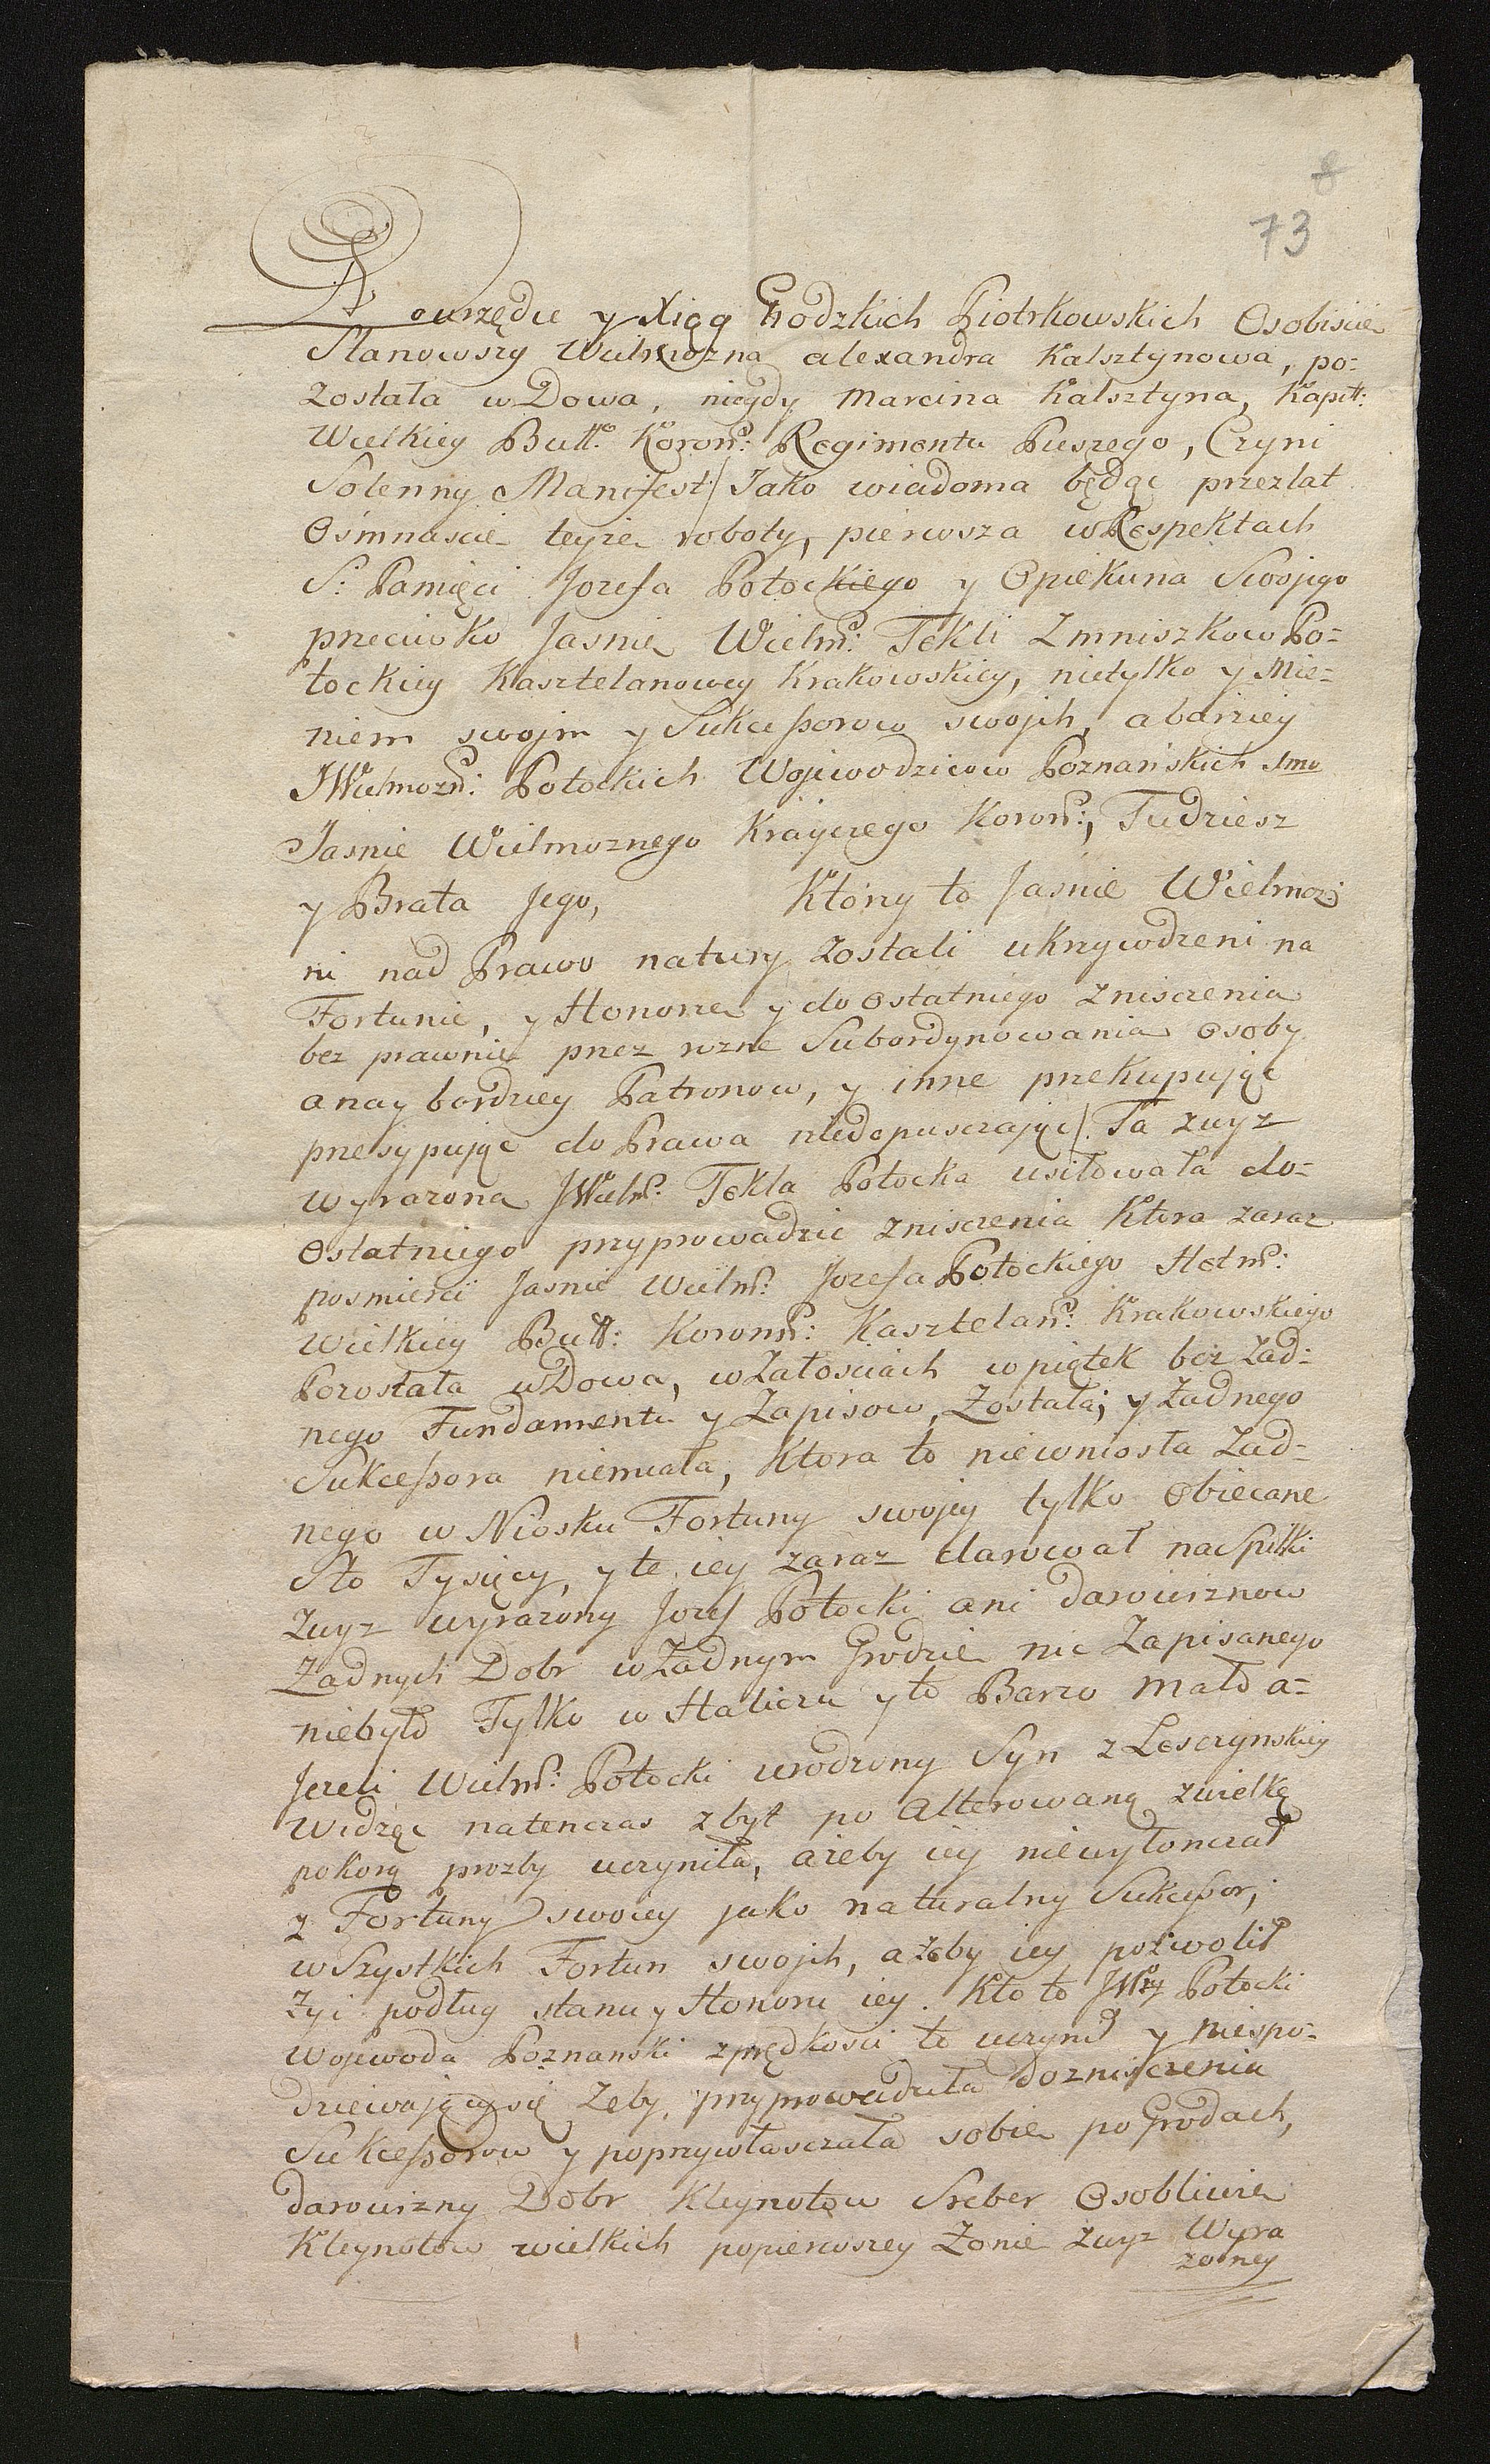 8
73
Do urzędu y Xiąg Grodzkich Piotrkowskich Osobiscie
Stanowszy Wielmozna alexandra Kalsztynowa, po=
została wDowa, niegdy Marcina Kalsztyna, Kapitt:
Wielkiey Butt: Koronn: Regimentu Pieszego, Czyni
Solenny Manifest/ Jako wiadoma będąc przezlat
Osimnascie teyze roboty, pierwsza wRespektach
S: Pamięci Jozefa Potockiego y Opiekuna Swojego
przeciwko Jasnie Wielm: Tekli Zmniszkow Po=
tockiey Kasztelanowey Krakowskiey, nietylko y Mie=
niem swojm y Sukceßorow swojch, abarziey
JWielmozn: Potockich Wojewodzicow Poznańskich 1mo
Jasnie Wielmoznego Krayczego Koron:, Tudziesz
y Brata Jego, Ktorzy to Jasnie Wielmoz:
ni nad Prawo natury zostali ukrzywdzeni na
Fortunie, y Honorze y do Ostatniego zniszczenia
bez prawnie przez rozne Subordynowania Osoby
anay bardziey Patronow, y inne przekupując
przesypując do Prawa niedopuszczając/. Ta zwyz
wyrazona JWielm: Tekla Potocka usiłowała do=
Ostatniego przyprowadzic zniszczenia Ktora zaraz
posmierci Jasnie Wielm: Jozefa Potockiego Hetm:
Wielkiey Butt: Koronn: Kasztelan: Krakowskiego
Pozostała wDowa, wzałosciach wpiątek bez zad=
nego Fundamentu y Zapisow, Została; y Zadnego
Sukceßora niemiała, Ktora to niewniosła Zad=
nego w Niosku Fortuny swojey tylko Obiecane
Sto Tysięcy, y te iey zaraz darował naSpilki
Zwyz wyrazony Jozef Potocki ani darowiznow
Zadnych Dobr wZadnym Grodzie nic Zapisanego
niebyło Tylko w Haliczu yto Barzo mało a=
Jezeli Wielm: Potocki urodzony Syn zLesczynskiey
Widząc natenczas zbyt po Alterowaną zwielką
pokorą prozby uczyniła, azeby iey niewyłonczał
z Fortuny swoiey jako naturalny Sukceßor,
wSzystkich Fortun swojch, azeby iey pozwolił
Zyi podług stanu y Honoru iey. Kto to JWny Potocki
Wojewoda Poznanski zprędkosci to uczynił y niespo=
dziewający się Zeby, przyprowadziła dozniszczenia
Sukceßorow y poprzywłaszczała sobie po Grodach,
darowizny Dobr Kleynotow Sreber Osobliwie
Kleynotow wielkich popierwszey Zonie zwyz Wyra
zoney